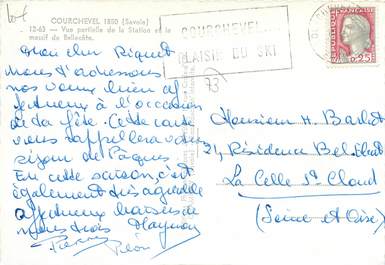 COURCHEVEL 1850 (Savoie)
12-63 — Vue partielle de la Station et le
massif de Bellecôte.
Mon cher Riquet
Nous t'adressons
nos vœux bien af
fectueux à l'occasion
de ta fête. Cette carte
vous rappellera votre
séjour de Pâques
En cette saison, c'est
également très agréable
affectueux baisers de
nous trois
Pierre
COURCHEVEL
PLAISIR DU SKI
73
REPUBLIQUE FRANÇAISE
0,25
Monsieur H.
21, Résidence Bel-Ebat
La Celle St Cloud
(Seine et Oise)